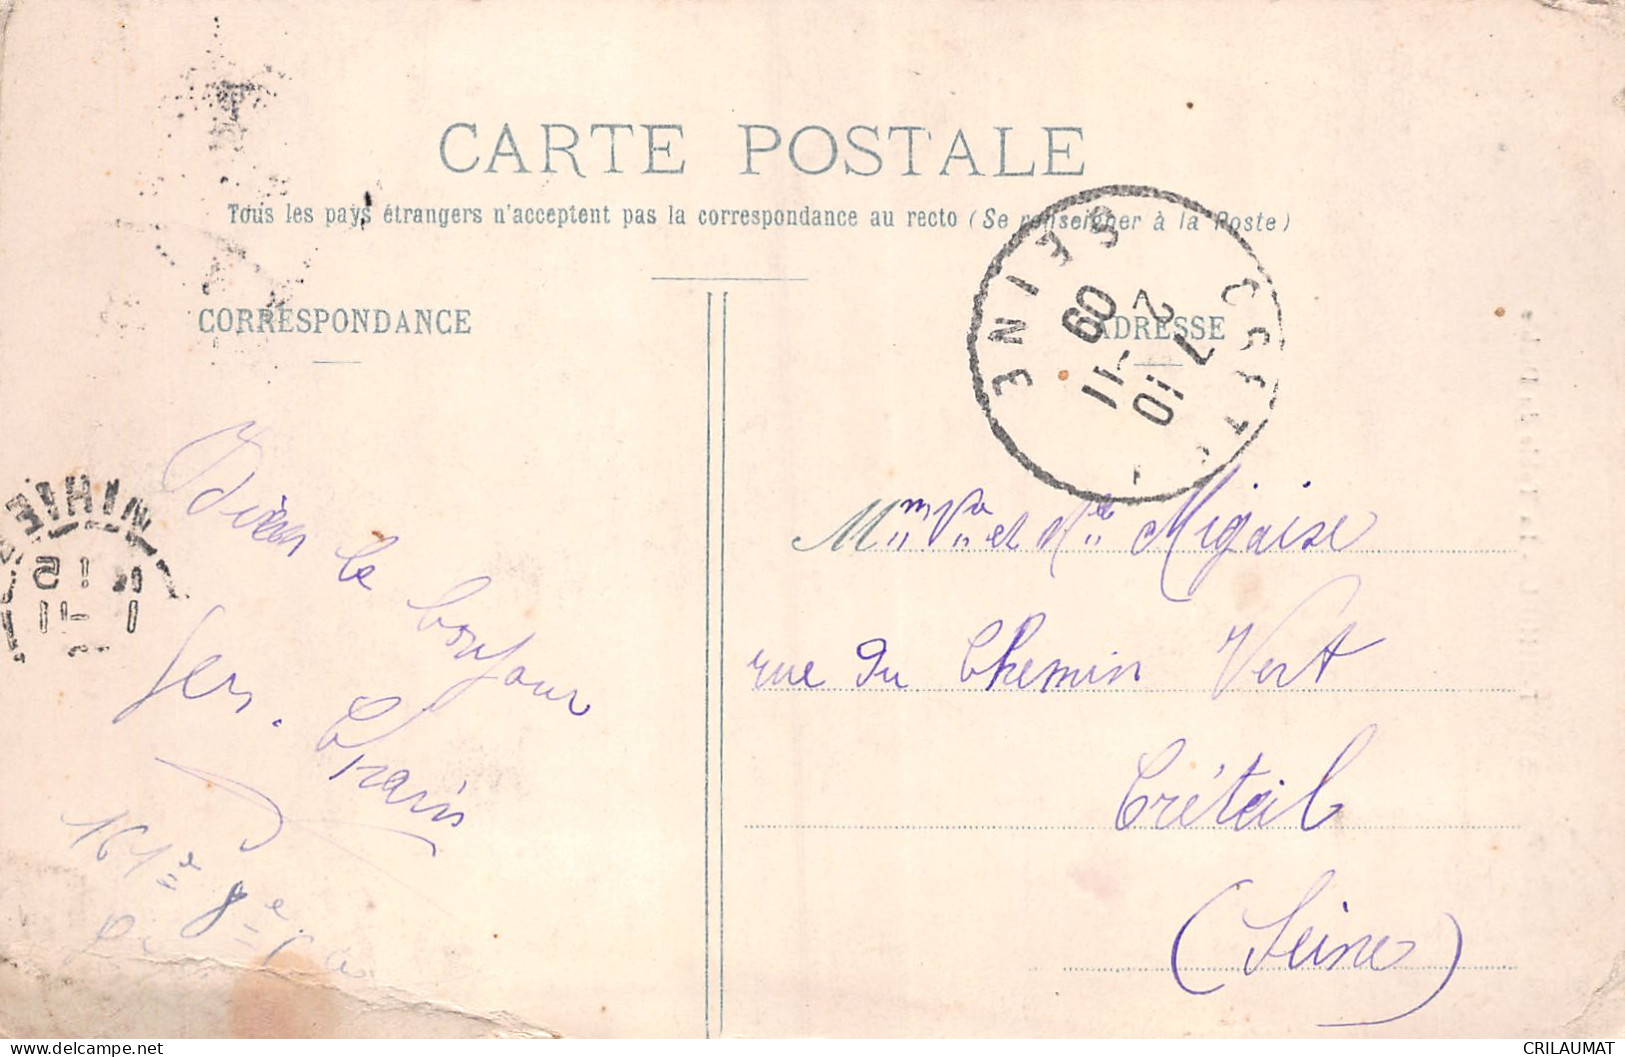 CARTE POSTALE
Tous les pays étrangers n'acceptent pas la correspondance au recto (Se renseigner à la Poste)
CORRESPONDANCE
ADRESSE
SEINE
7 2
10 - 11
09
bien le bonjour
164e 8e
Mme Va et Mlle Migaise
rue du Chemin Vert
Créteil
(Seine)
delcampe.net
CRILAUMAT